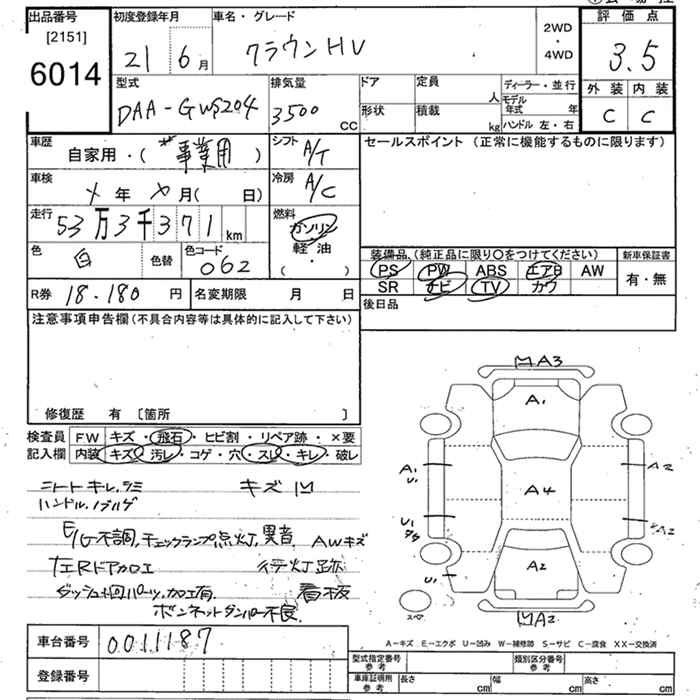 出品番号
[2151]
6014
初度登録年月
21 6月
車名・グレード
クラウンHV
2WD
・
4WD
評価点
3.5
外装 内装
C C
型式
DAA-GWS204
排気量
3500 CC
ドア
形状
定員 人
積載 kg
ディーラー・並行
モデル年式 年
ハンドル 左・右
車歴
自家用・(事業用)
シフト
A/T
セールスポイント (正常に機能するものに限ります)
車検
年 月( 日)
冷房
A/C
走行
53万3千371km
燃料
ガソリン
・
軽・油
( )
色
白
色替
色コード
062
装備品 (純正品に限り〇をつけてください)
新車保証書
PS PW ABS エアB AW
SR ナビ TV カワ
有・無
R券 18.180円
名変期限 月 日
後日品
注意事項申告欄(不具合内容等は具体的に記入して下さい)
修復歴 有 [箇所 ]
検査員記入欄
FW キズ・飛石・ヒビ割・リペア跡・×要
内装 キズ・汚レ・コゲ・穴・スレ・キレ・破レ
シートキレ,シミ キズ凹
ハンドル,ノブハゲ
E/G不調,チェックランプ点灯,異音 AWキズ
行灯跡
ダッシュ廻パーツ,加工有 看板
ボンネットダンパー不良
A3
A1
A1
U1
A2
A4
U1
A2
A2
U1
スペア
A2
A-キズ E-エクボ U-凹み W-補修跡 S-サビ C-腐食 XX-交換済
車台番号 0011187
登録番号
型式指定番号
参考
類別区分番号
参考
車庫証明用
参考
長さ cm
幅 cm
高さ cm